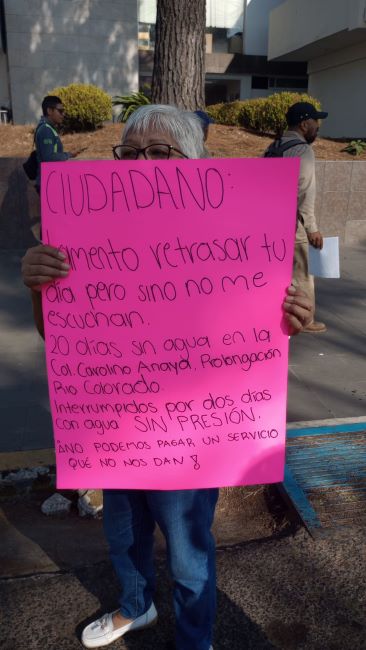 CIUDADANO:
Lamento retrasar tu
día pero sino no me
escuchan.
20 días sin agua en la
Col. Carolino Anaya, Prolongación
Rio Colorado.
Interrumpidos por dos días
con agua SIN PRESIÓN.
¡NO PODEMOS PAGAR UN SERVICIO
QUE NO NOS DAN!